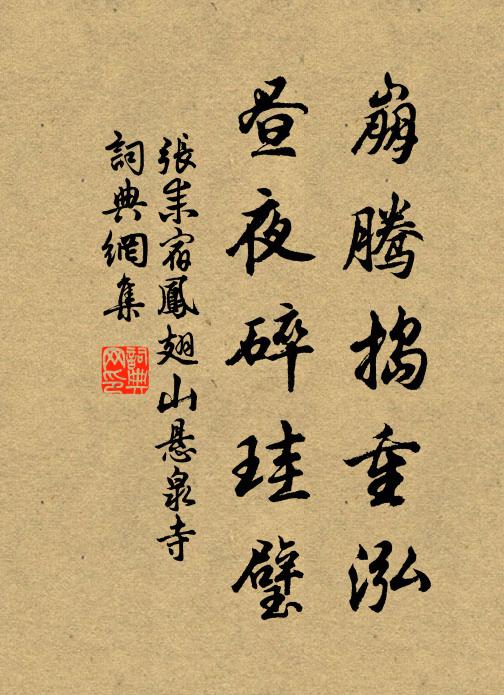 崩腾捣重泓
昼夜碎珪璧
張耒宿鳳翅山悬泉寺
詞典網集
詞典网印